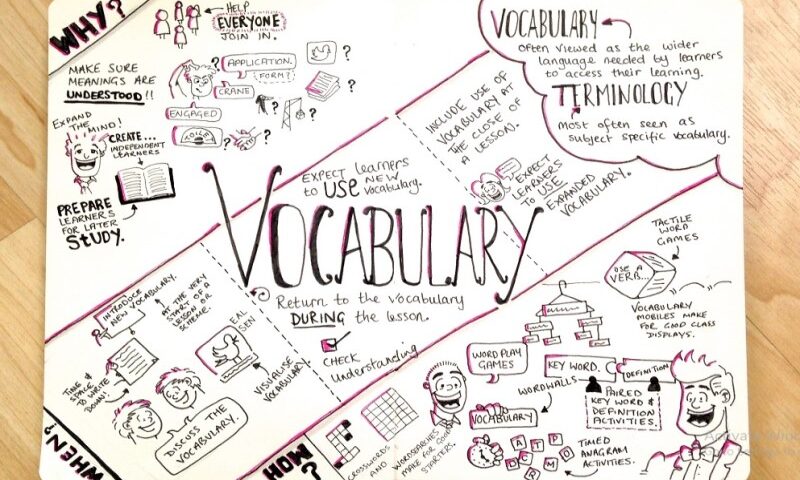 WHY?
HELP
EVERYONE
JOIN IN.
MAKE SURE
MEANINGS ARE
UNDERSTOOD!!
APPLICATION.
FORM?
CRANE
ENGAGED
TOILET
?
?
?
?
?
?
?
EXPAND
THE MIND!
CREATE...
INDEPENDENT
LEARNERS
PREPARE
LEARNERS
FOR LATER
STUDY.
VOCABULARY
Often viewed as the wider
language needed by learners
to access their learning.
TERMINOLOGY
Most often seen as
subject specific vocabulary.
INCLUDE USE OF
VOCABULARY AT
THE CLOSE OF
A LESSON.
EXPECT
LEARNERS
TO USE
EXPANDED
VOCABULARY.
EXPECT learners
to USE new
vocabulary.
VOCABULARY
Return to the vocabulary
DURING the lesson.
CHECK
understanding
WHEN?
INTRODUCE
NEW VOCABULARY.
AT THE VERY
START OF A
LESSON OR
SCHEME.
TIME &
SPACE
TO WRITE
DOWN!
EAL
SEN
VISUALISE
VOCABULARY.
DISCUSS THE
VOCABULARY.
HOW?
CROSSWORDS
AND
WORDSEARCHES
MAKE FOR GOOD
STARTERS.
WORD PLAY
GAMES
WORDWALLS
VOCABULARY
TACTILE
WORD
GAMES
USE A
VERB...
VOCABULARY
MOBILES MAKE
FOR GOOD CLASS
DISPLAYS.
KEY WORD.
DEFINITION
PAIRED
KEY WORD &
DEFINITION
ACTIVITIES.
TIMED
ANAGRAM
ACTIVITIES.